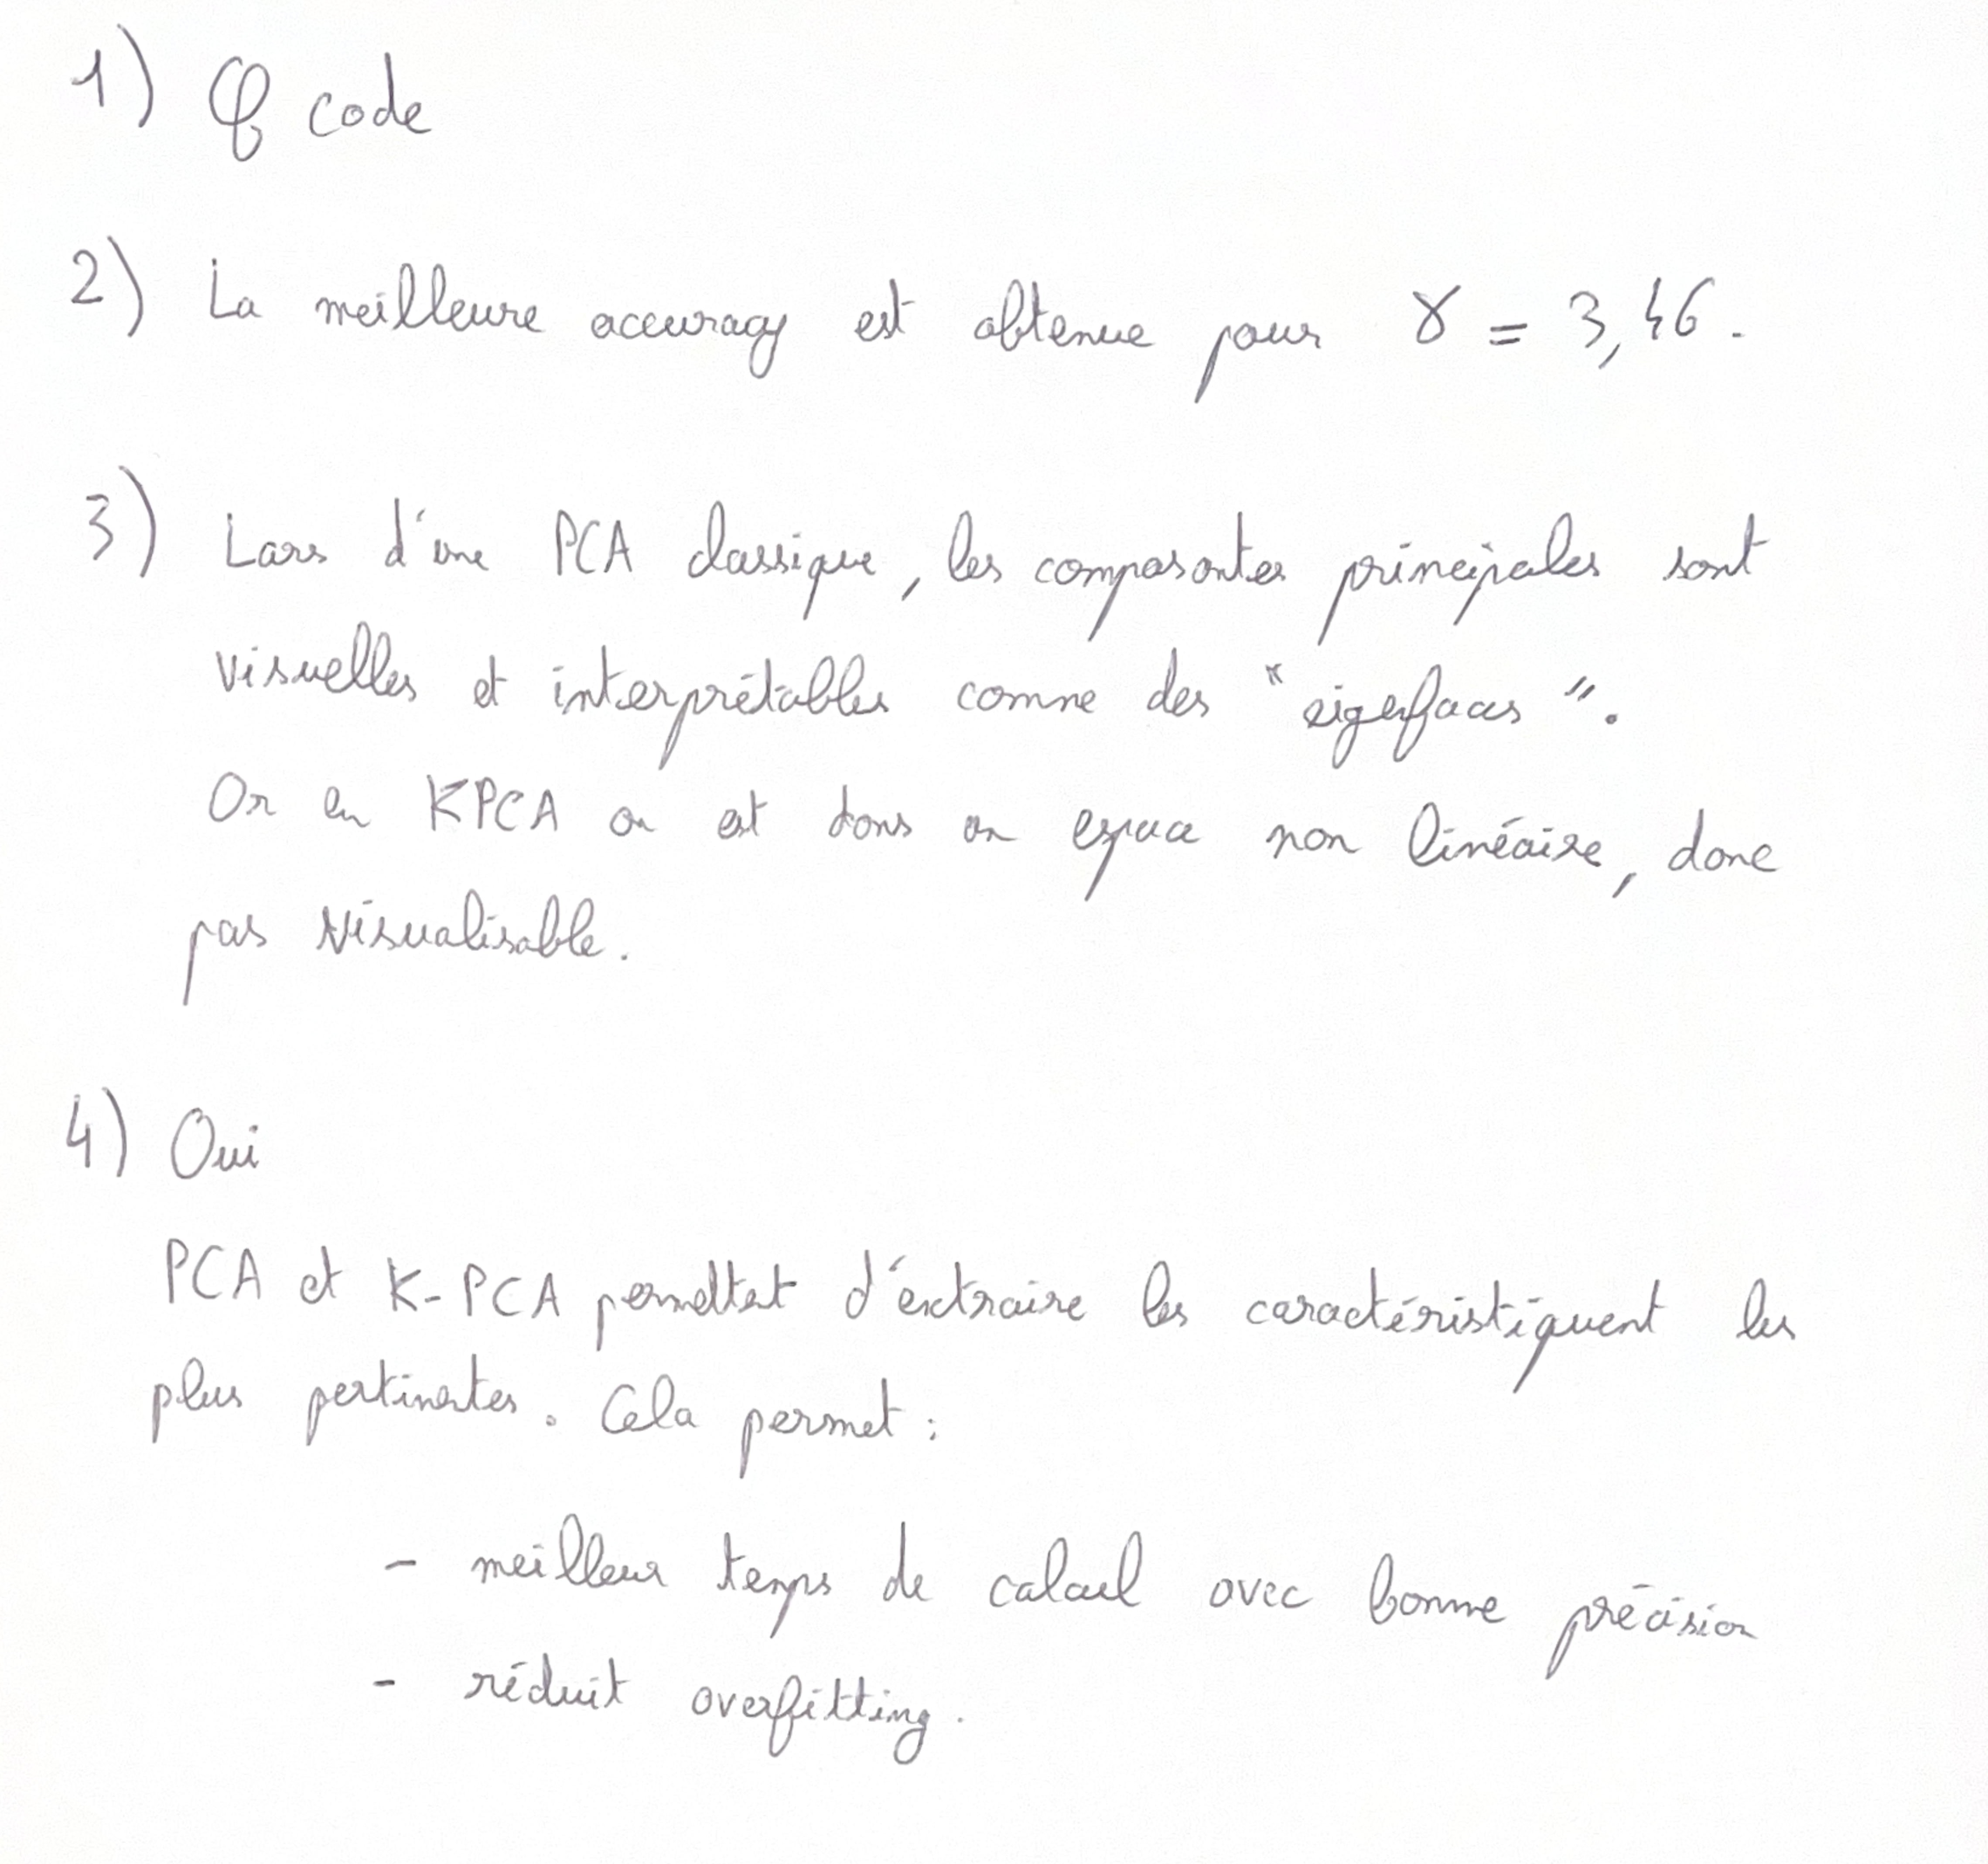 1) Cf code
2) La meilleure accuracy est obtenue pour γ = 3,46.
3) Lors d'une PCA classique, les composantes principales sont
visuelles et interprétables comme des "eigenfaces".
Or en KPCA on est dans un espace non linéaire, donc
pas visualisable.
4) Oui
PCA et K-PCA permettent d'extraire les caractéristiquent les
plus pertinentes. Cela permet :
- meilleur temps de calcul avec bonne précision
- réduit overfitting.